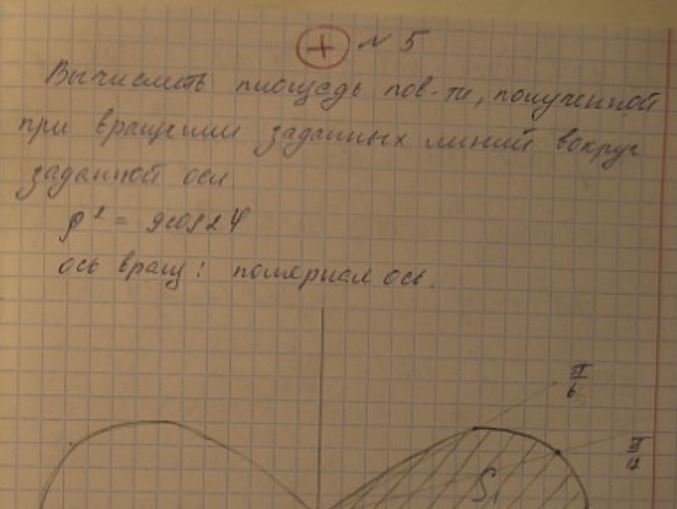 + № 5
Вычислить площадь пов-ти, полученной
при вращении заданных линий вокруг
заданной оси.
ρ² = 9cos2φ
ось вращ: полярная ось.
π/6
π/12
S₁